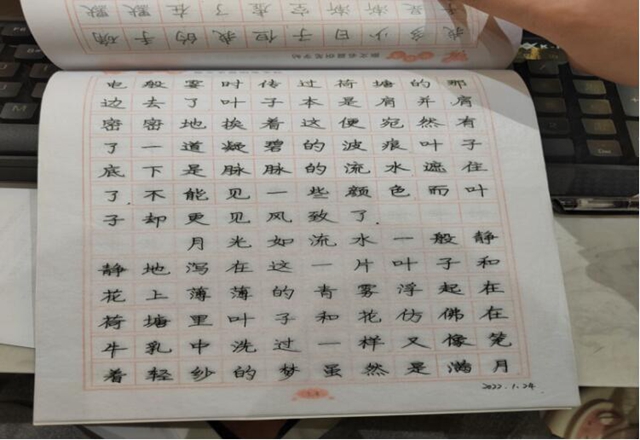 我多少日子但我的手确
是渐渐空虚了在默默
电般霎时传过荷塘的那
边去了叶子本是肩并肩
密密地挨着这便宛然有
了一道凝碧的波痕叶子
底下是脉脉的流水遮住
了.不能见一些颜色而叶
子却更见风致了.
月光如流水一般静
静地泻在这一片叶子和
花上薄薄的青雾浮起在
荷塘里叶子和花仿佛在
牛乳中洗过一样又像笼
着轻纱的梦虽然是满月
2022.1.24.